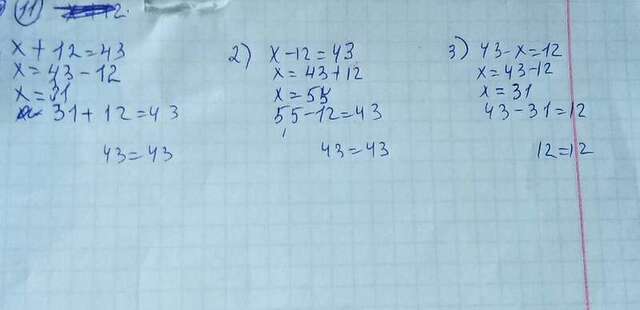 11
x + 12 = 43
x = 43 - 12
x = 31
31 + 12 = 43
43 = 43
2) x - 12 = 43
x = 43 + 12
x = 55
55 - 12 = 43
43 = 43
3) 43 - x = 12
x = 43 - 12
x = 31
43 - 31 = 12
12 = 12